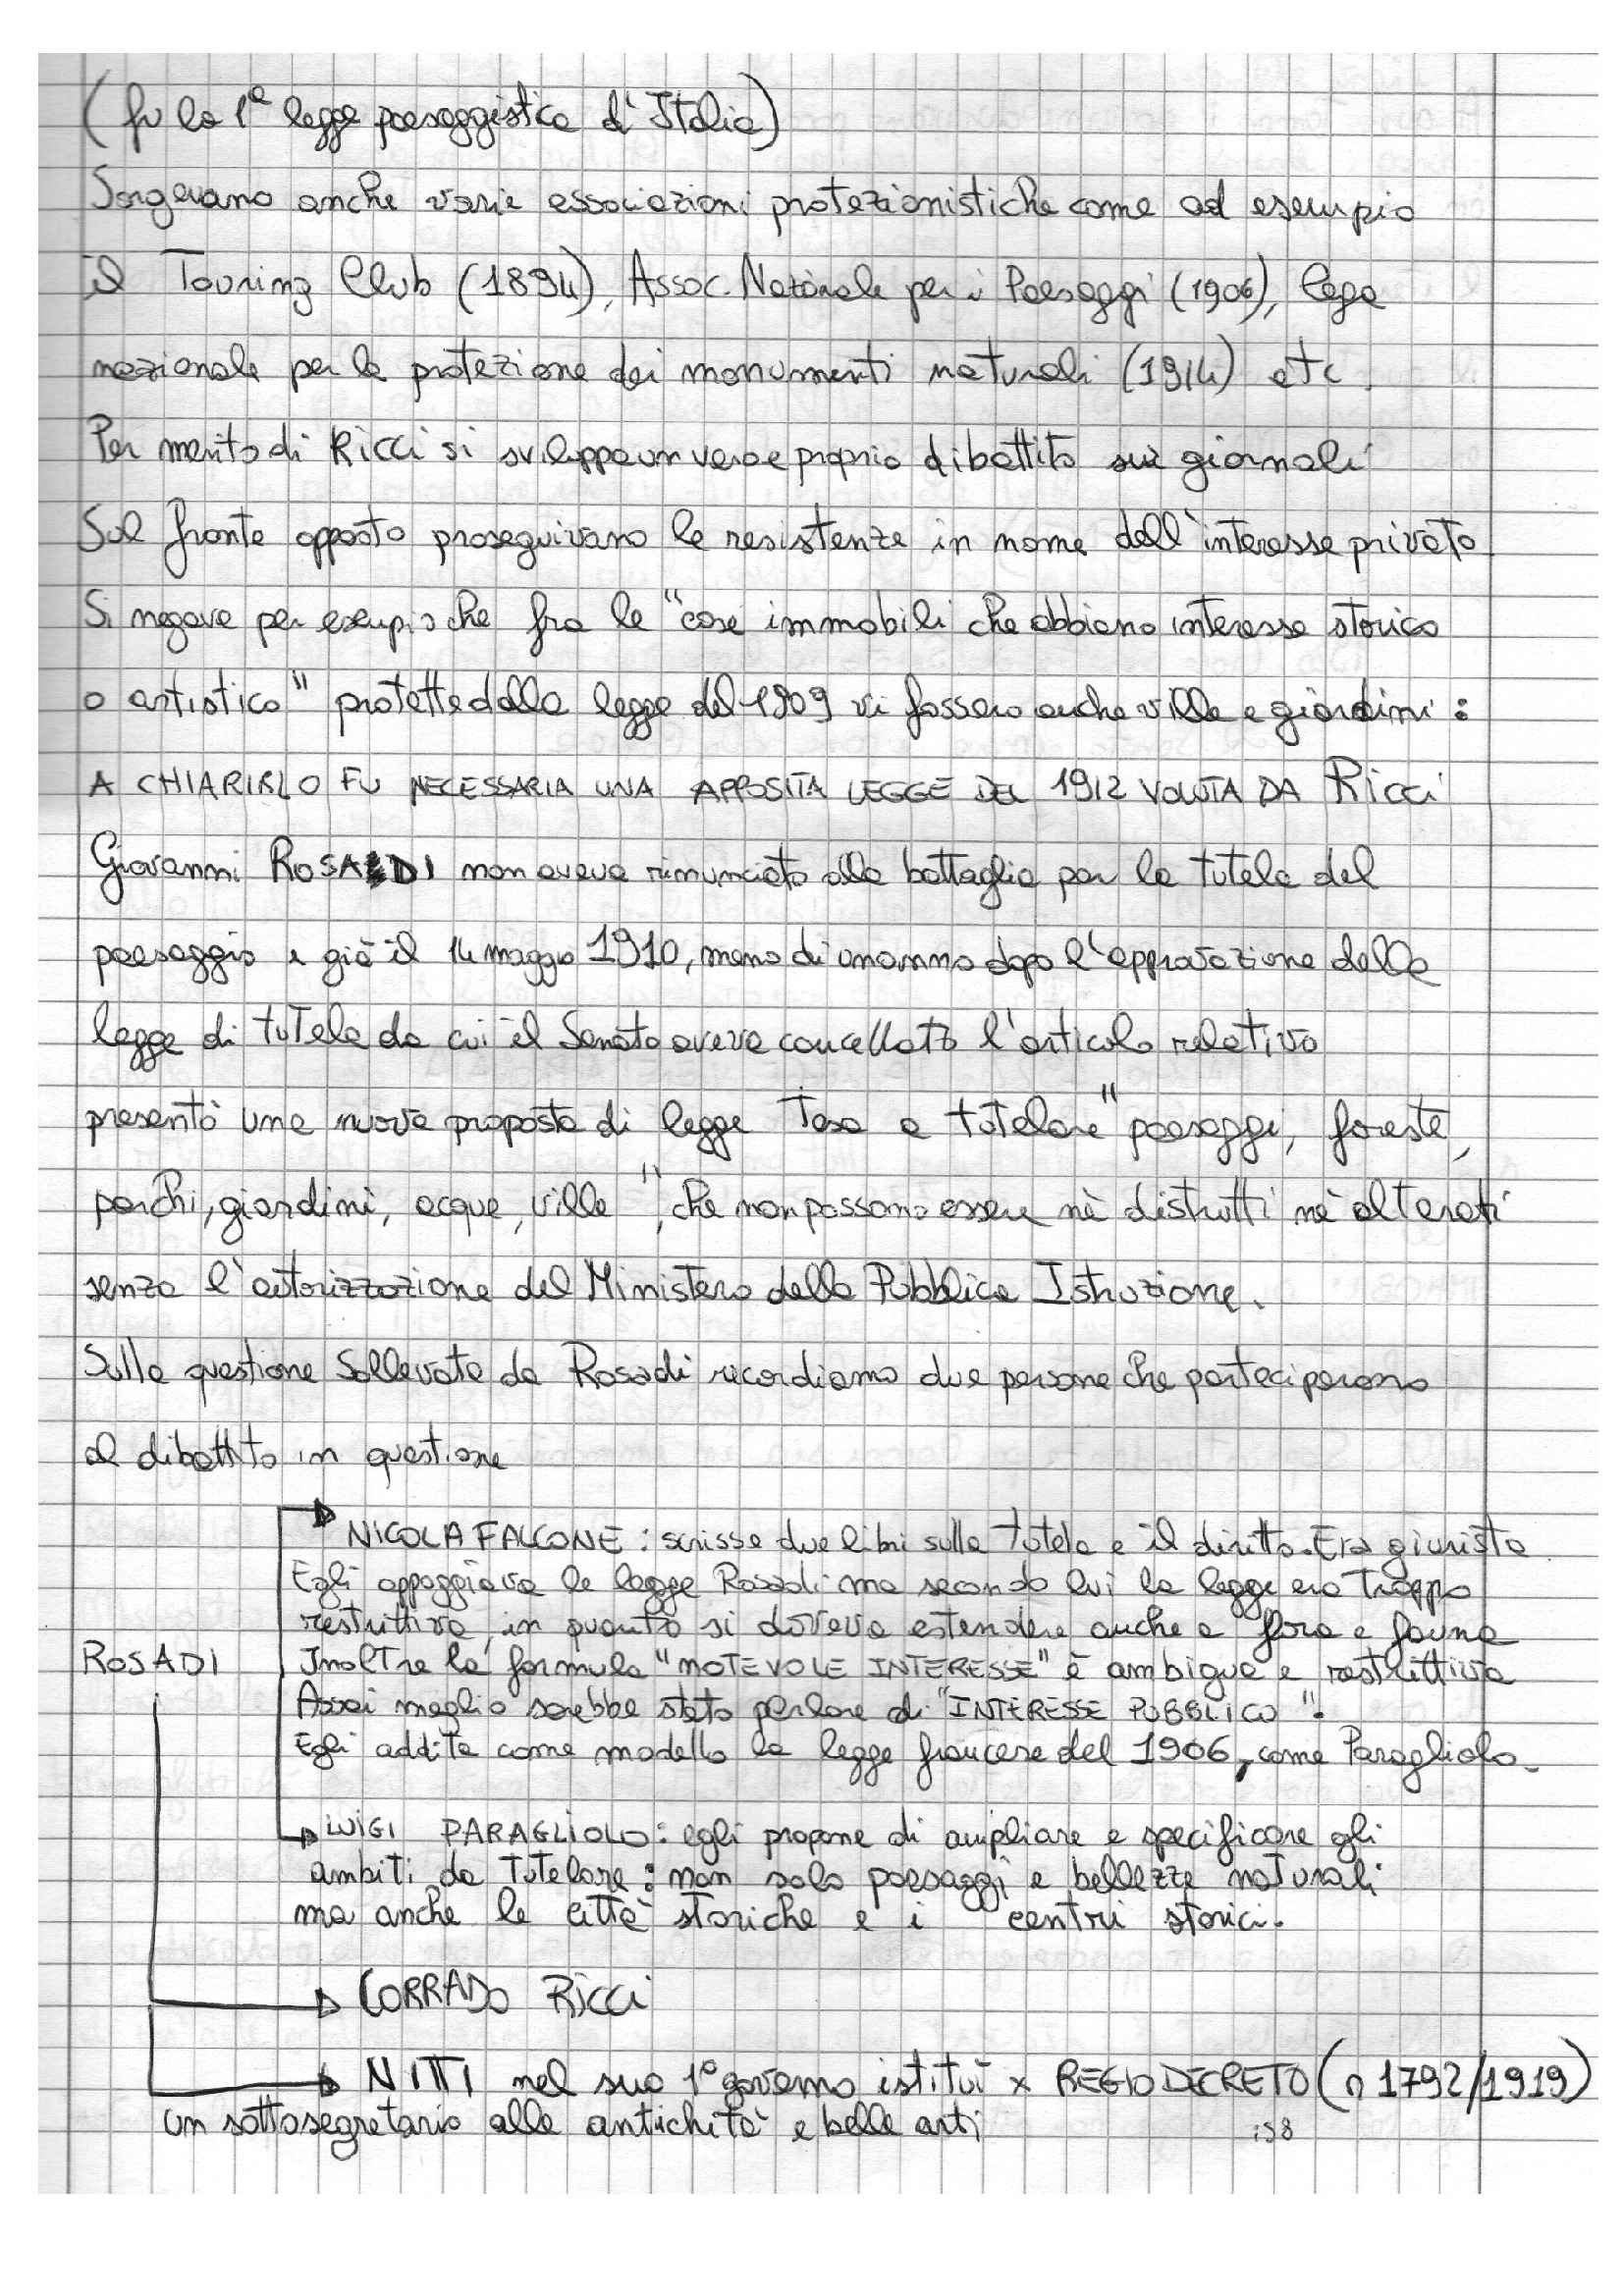 (fu la 1ª legge paesaggistica d'Italia)
Sorgevano anche varie associazioni protezionistiche come ad esempio
il Touring Club (1894), Assoc. Nazionale per i Paesaggi (1906), lega
nazionale per la protezione dei monumenti naturali (1914) etc.
Per merito di Ricci si sviluppa un vero e proprio dibattito sui giornali
Sul fronte opposto proseguivano le resistenze in nome dell'interesse privato
Si negava per esempio che fra le "cose immobili che abbiano interesse storico
o artistico" protette dalla legge del 1909 vi fossero anche ville e giardini:
A CHIARIRLO FU NECESSARIA UNA APPOSITA LEGGE DEL 1912 VOLUTA DA Ricci
Giovanni ROSADI non aveva rinunciato alla battaglia per la tutela del
paesaggio e già il 14 maggio 1910, meno di un anno dopo l'approvazione della
legge di tutela da cui il Senato aveva cancellato l'articolo relativo
presentò una nuova proposta di legge tesa a tutelare "paesaggi, foreste,
parchi, giardini, acque, ville", che non possono essere nè distrutti nè alterati
senza l'autorizzazione del Ministero della Pubblica Istruzione.
Sulla questione sollevata da Rosadi ricordiamo due persone che parteciparono
al dibattito in questione
NICOLA FALCONE: scrisse due libri sulla tutela e il diritto. Era giurista
Egli appoggiava la legge Rosadi ma secondo lui la legge era troppo
restrittiva, in quanto si doveva estendere anche a flora e fauna
ROSADI Inoltre la formula "NOTEVOLE INTERESSE" è ambigua e restrittiva
Assai meglio sarebbe stato parlare di "INTERESSE PUBBLICO".
Egli addita come modello la legge francese del 1906, come Paragliolo.
LUIGI PARAGLIOLO: egli propone di ampliare e specificare gli
ambiti da tutelare: non solo paesaggi e bellezze naturali
ma anche le città storiche e i centri storici.
CORRADO Ricci
NITTI nel suo 1° governo istituì x REGIO DECRETO (n 1792/1919)
un sottosegretario alle antichità e belle arti